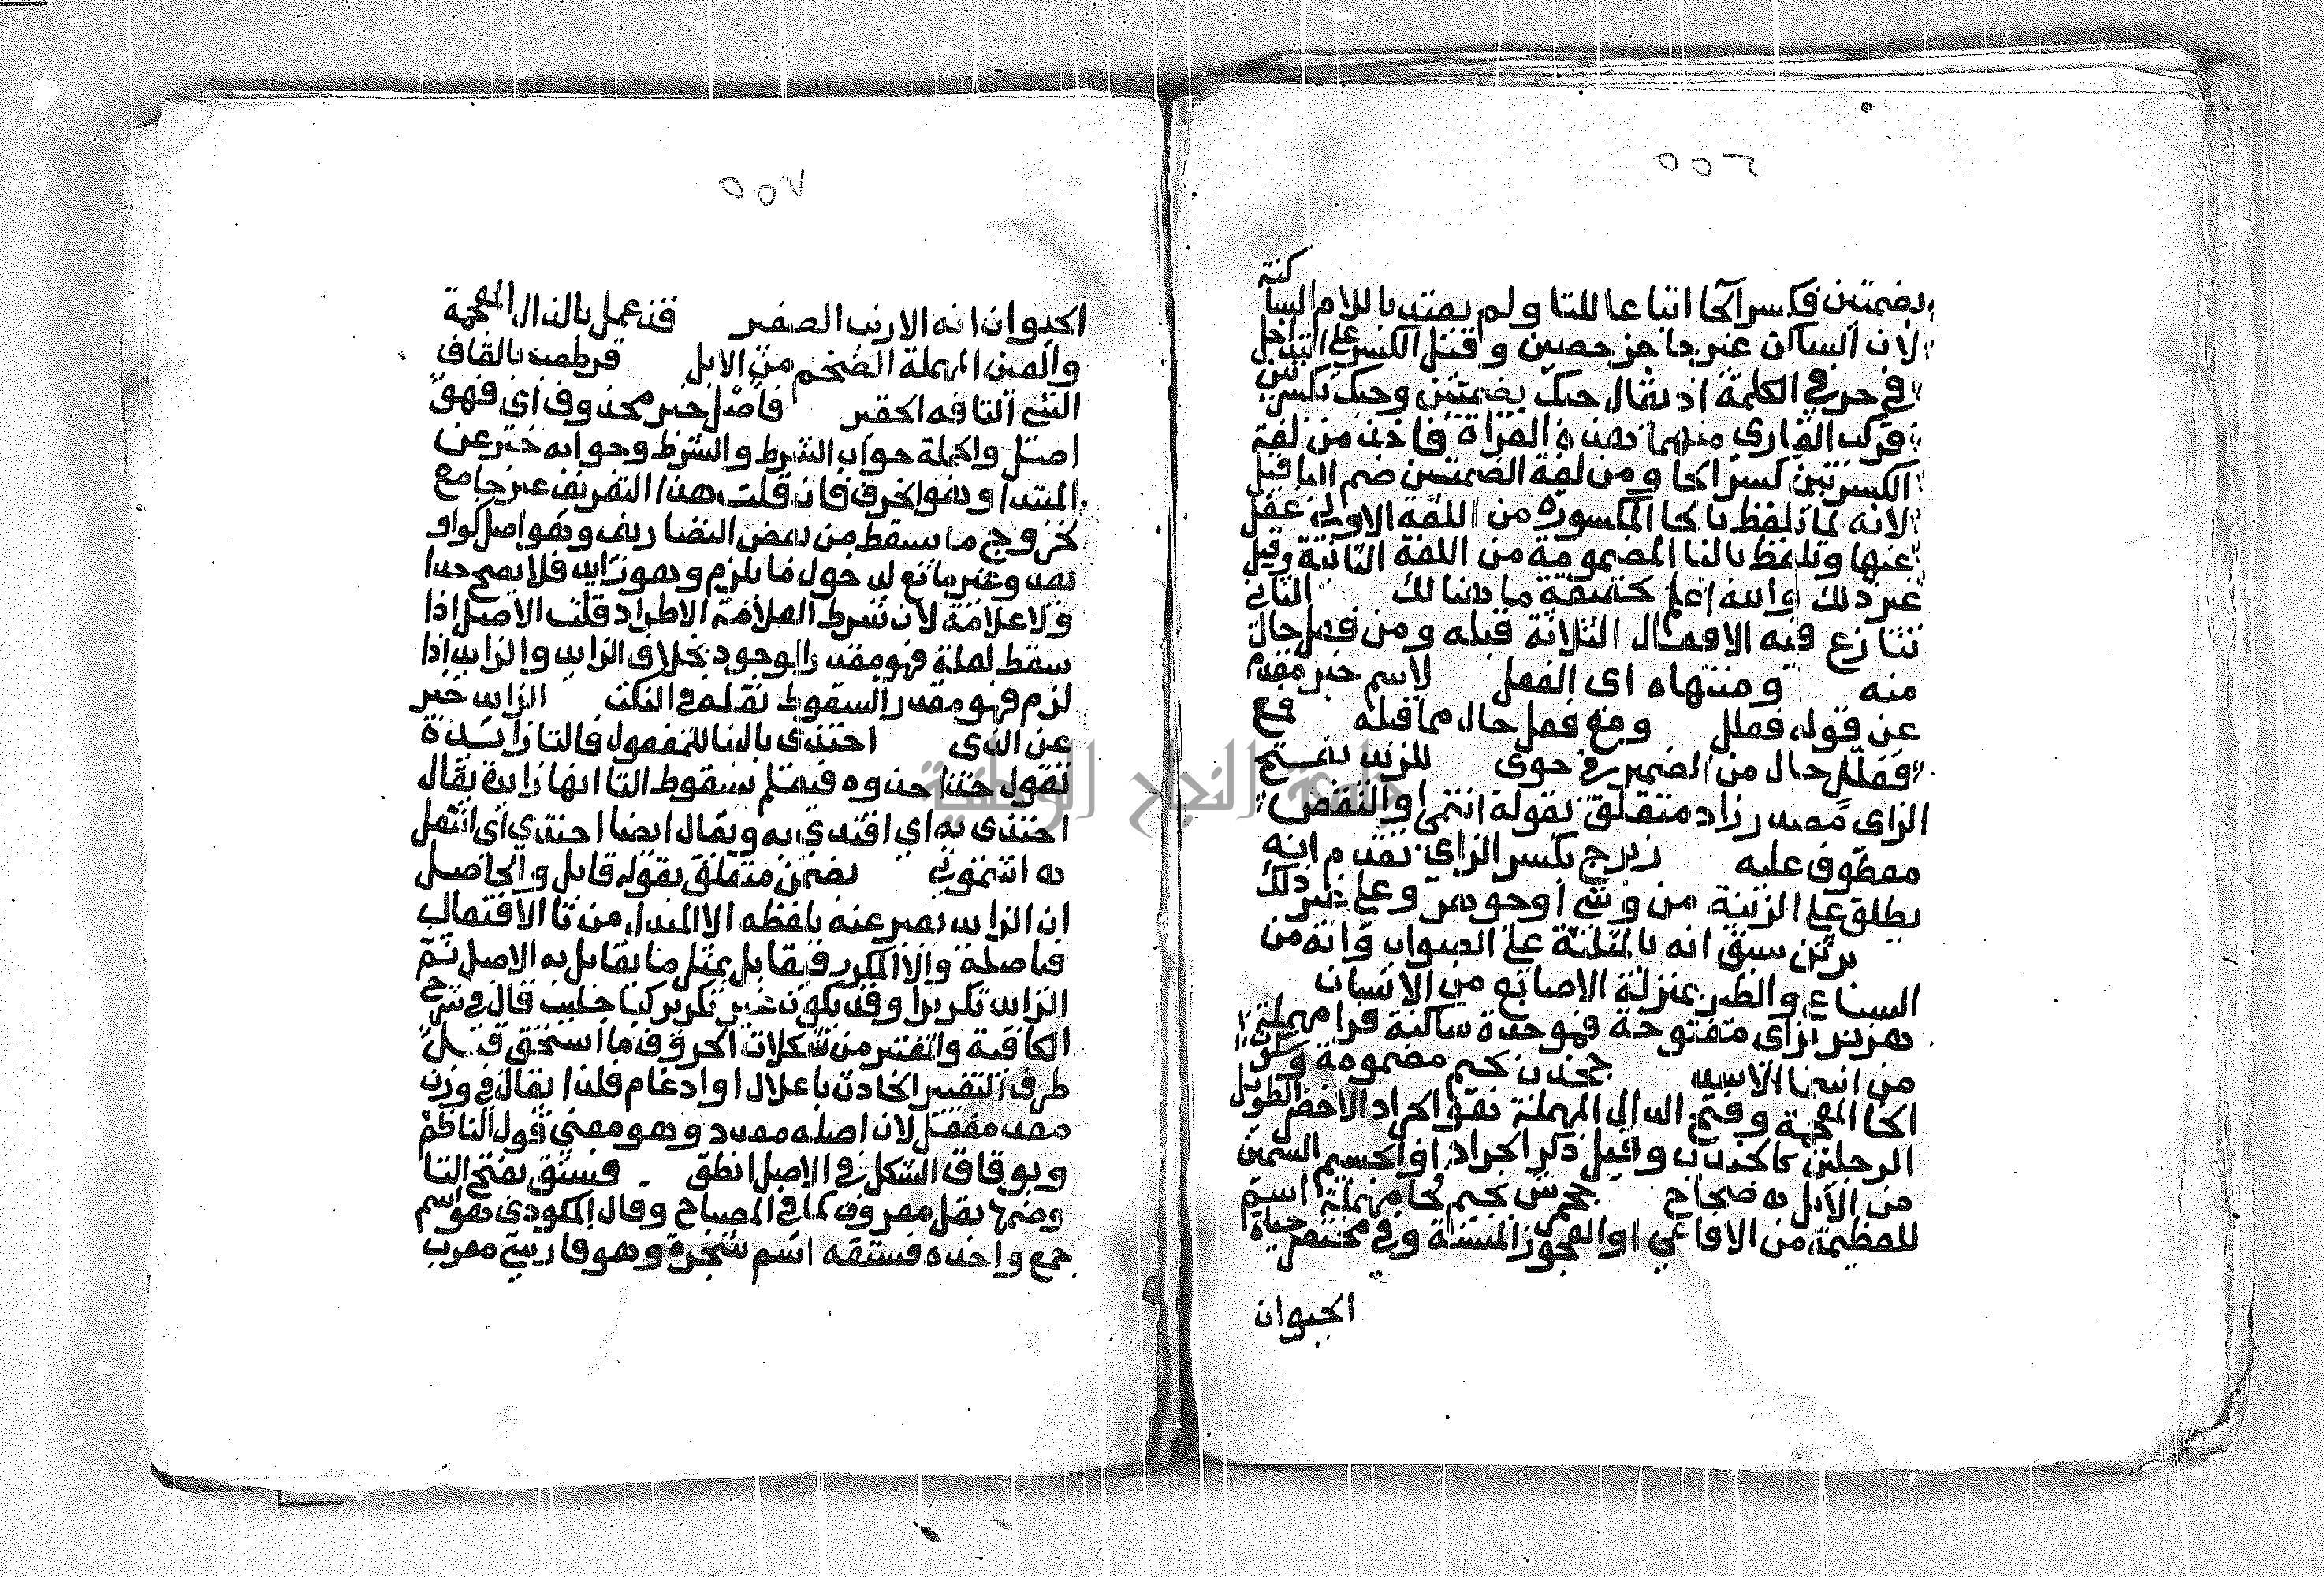 ٥٥٦
بضمتين فكسر الحا اتباعا للتا ولم يعتد باللام الساكنة
لان الساكن غير حاجز حصين وقيل الكسر على التداخل
في حرفي الكلمة اذ يقال حبك بضمتين وحبك بكسرتين
فركب القاري منهما هذه القراة فاخذ من لغة
الكسرتين كسر الحا ومن لغة الضمتين ضم البا قيل
لانه لما تلفظ بالحا المكسورة من اللغة الاولى غفل
عنها وتلفظ بالبا المضمومة من اللغة الثانية وقيل
غير ذلك والله اعلم بحقيقة ما هنالك الثاني
تنازع فيه الافعال الثلاثة قبله ومن فعل حال
منه ومنتهاه اى الفعل لاسم خبر مقدم
عن قوله فعلل ومع فعل حال مما قبله مع
فعلل حال من الضمير في حوى للزيد بفتح
الزاى مصدر زاد متعلق بقوله انتمى والنقص
معطوف عليه زبرج بكسر الزاى تقدم انه
يطلق على الزينة من وشي او جوهر وعلى غير ذلك
برثن سبق انه بالمثلثة على الصواب وانه من
السباع والطير بمنزلة الاصابع من الانسان
هزبر بزاى مفتوحة فموحدة ساكنة فرا مهملة
من اسما الاسد جخدب بجيم مضمومة وسكون
الخا المعجمة وفتح الدال المهملة نقو الجراد الاخضر الطويل
الرجلين كالجندب وقيل ذكر الجراد او الجسيم السمين
من الابل به ضجاج جحمرش بجيم فحا مهملة اسم
للعظيمة من الافاعي او العجوز المسنة وفي مختصر حياة
الحيوان
٥٥٧
الحيوان انه الارنب الصغير قذعمل بالذال المعجمة
والعين المهملة الضخم من الابل قرطعبة بالقاف
الشي التافه الحقير فاصل خبر محذوف اى فهو
اصل والجملة جواب الشرط والشرط وجوابه خبر عن
المبتدا وهو الحرف فان قلت هذا التعريف غير جامع
لخروج ما يسقط من بعض التصاريف وهو اصل كواو
يعد وغير مانع لدخول ما يلزم وهو زايد فلا يصح حدا
ولا علامة لان شرط العلامة الاطراد قلت الاصل اذا
سقط لعلة فهو مقدر الوجود بخلاف الزايد والزايد اذا
لزم فهو مقدر السقوط نقله في النكت الزايد خبر
عن الذى احتذى بالبنا للمفعول فالتا زايدة
تقول حذا حذوه فتعلم بسقوط التا انها زايدة يقال
احتذى به اى اقتدى به ويقال ايضا احتذى اى انتعل
به انتهى بضمن متعلق بقوله قابل والحاصل
ان الزايد يعبر عنه بلفظه الا المبدل من تا الافتعال
فباصله والا المكرر فيقابل بمثل ما يقابل به الاصل ثم
الزايد تكريرا وقد يكون غير تكرير كبا جلبب قال في شرح
الكافية والمعتبر من شكلات الحروف ما استحق قبل
طرف التغيير الحادث باعلال او ادغام فلذا يقال في وزن
معد مفعل لان اصله معدد وهو معنى قول الناظم
وبوفاق الشكل في الاصل انطق فستق بفتح التا
وضمها نقل معروف كما في المصباح وقال المكودى هو اسم
جمع واحده فستقة اسم شجرة وهو فارسي معرب